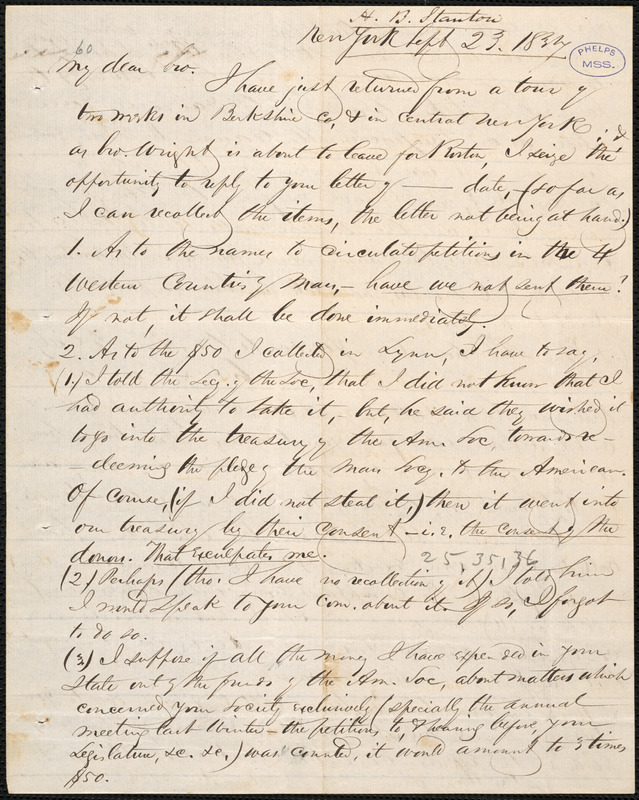 H. B. Stanton
New York Sept 23. 1837
PHELPS
MSS.
60
My dear bro.
I have just returned from a tour of
two weeks in Berkshire co, & in central New York; &
as bro. Wright is about to leave for Boston, I seize the
opportunity to reply to your letter of — date, (so far as
I can recollect the items, the letter not being at hand.)
1. As to the names to circulate petitions in the 4
Western Counties of Mass, - have we not sent them?
If not, it shall be done immediately.
2. As to the $50 I collected in Lynn, I have to say,
(1.) I told the Secy. of the Soc, that I did not know that I
had authority to take it, - but, he said they wished it
to go into the treasury of the Am. Soc, towards re-
-deeming the pledge of the Mass Socy. to the American.
Of course, (if I did not steal it,) then it went into
our treasury by their consent - i.e. the consent of the
donors. That exculpates me.
25,35,36
(2) Perhaps (tho. I have no recollection of it) I told him
I would speak to your com. about it. If so, I forgot
to do so.
(3) I suppose if all the money I have expended in your
State out of the funds of the Am. Soc, about matters which
concerned your Society exclusively (specially the annual
meeting last Winter - the petitions to, & hearing before, your
Legislature, &c. &c.) was counted, it would amount to 3 times
$50.